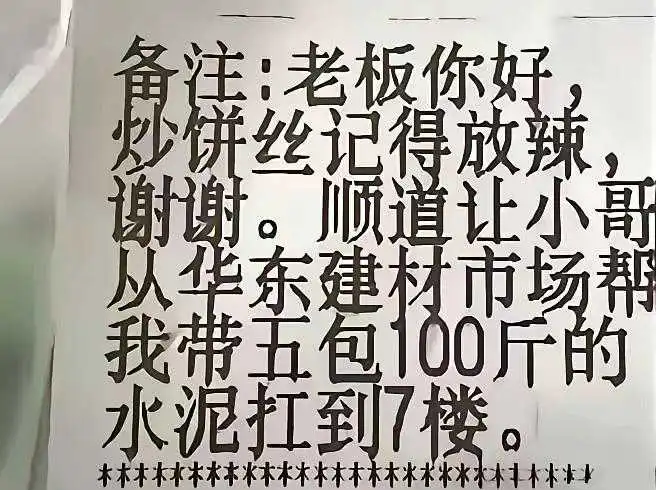 备注:老板你好，
炒饼丝记得放辣，
谢谢。顺道让小哥
从华东建材市场帮
我带五包100斤的
水泥扛到7楼。
********************************